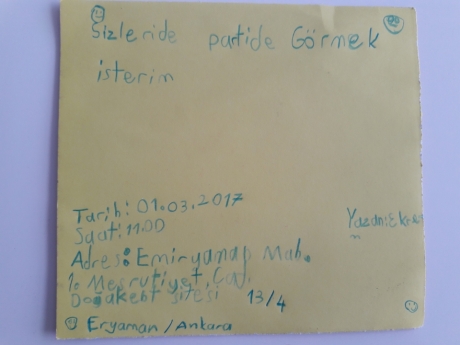 Sizleride partide Görmek
isterim
Tarih: 01.03.2017
Saat: 11.00
Yazan: Ekrem
Adres: Emiryanap Mah.
1. Meşrutiyet. Cad.
Doğakent sitesi 13/4
Eryaman / Ankara